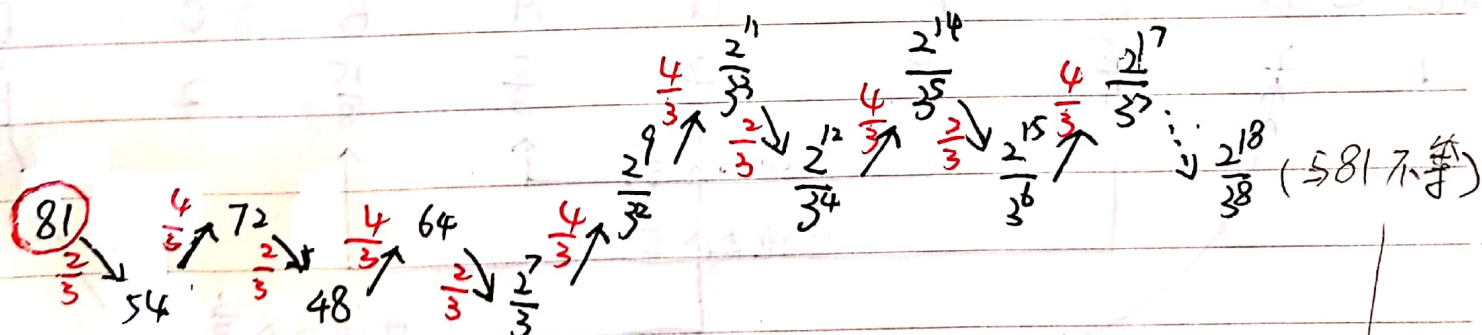 81 2/3 54 4/3 72 2/3 48 4/3 64 2/3 2^7/3 4/3 2^9/3^2 4/3 2^11/3^3 2/3 2^12/3^4 4/3 2^14/3^5 2/3 2^15/3^6 4/3 2^17/3^7 2^18/3^8 (与81不等)